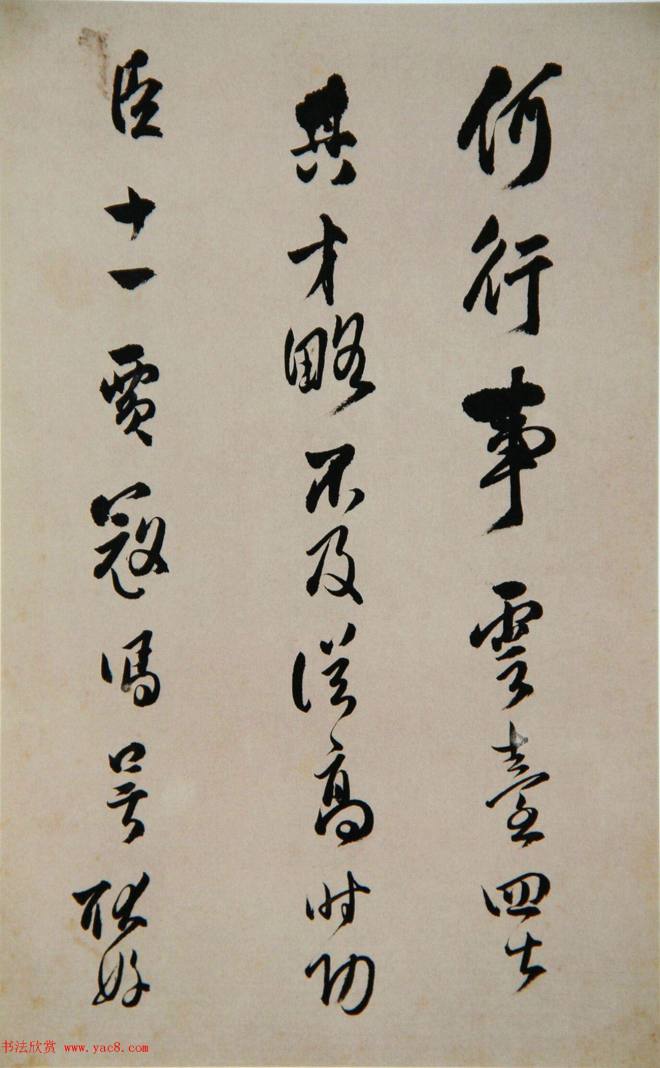 何行事雲臺四七
其才略不及從高時功
臣十一賈寇馮吳耿
书法欣赏 www.yac8.com